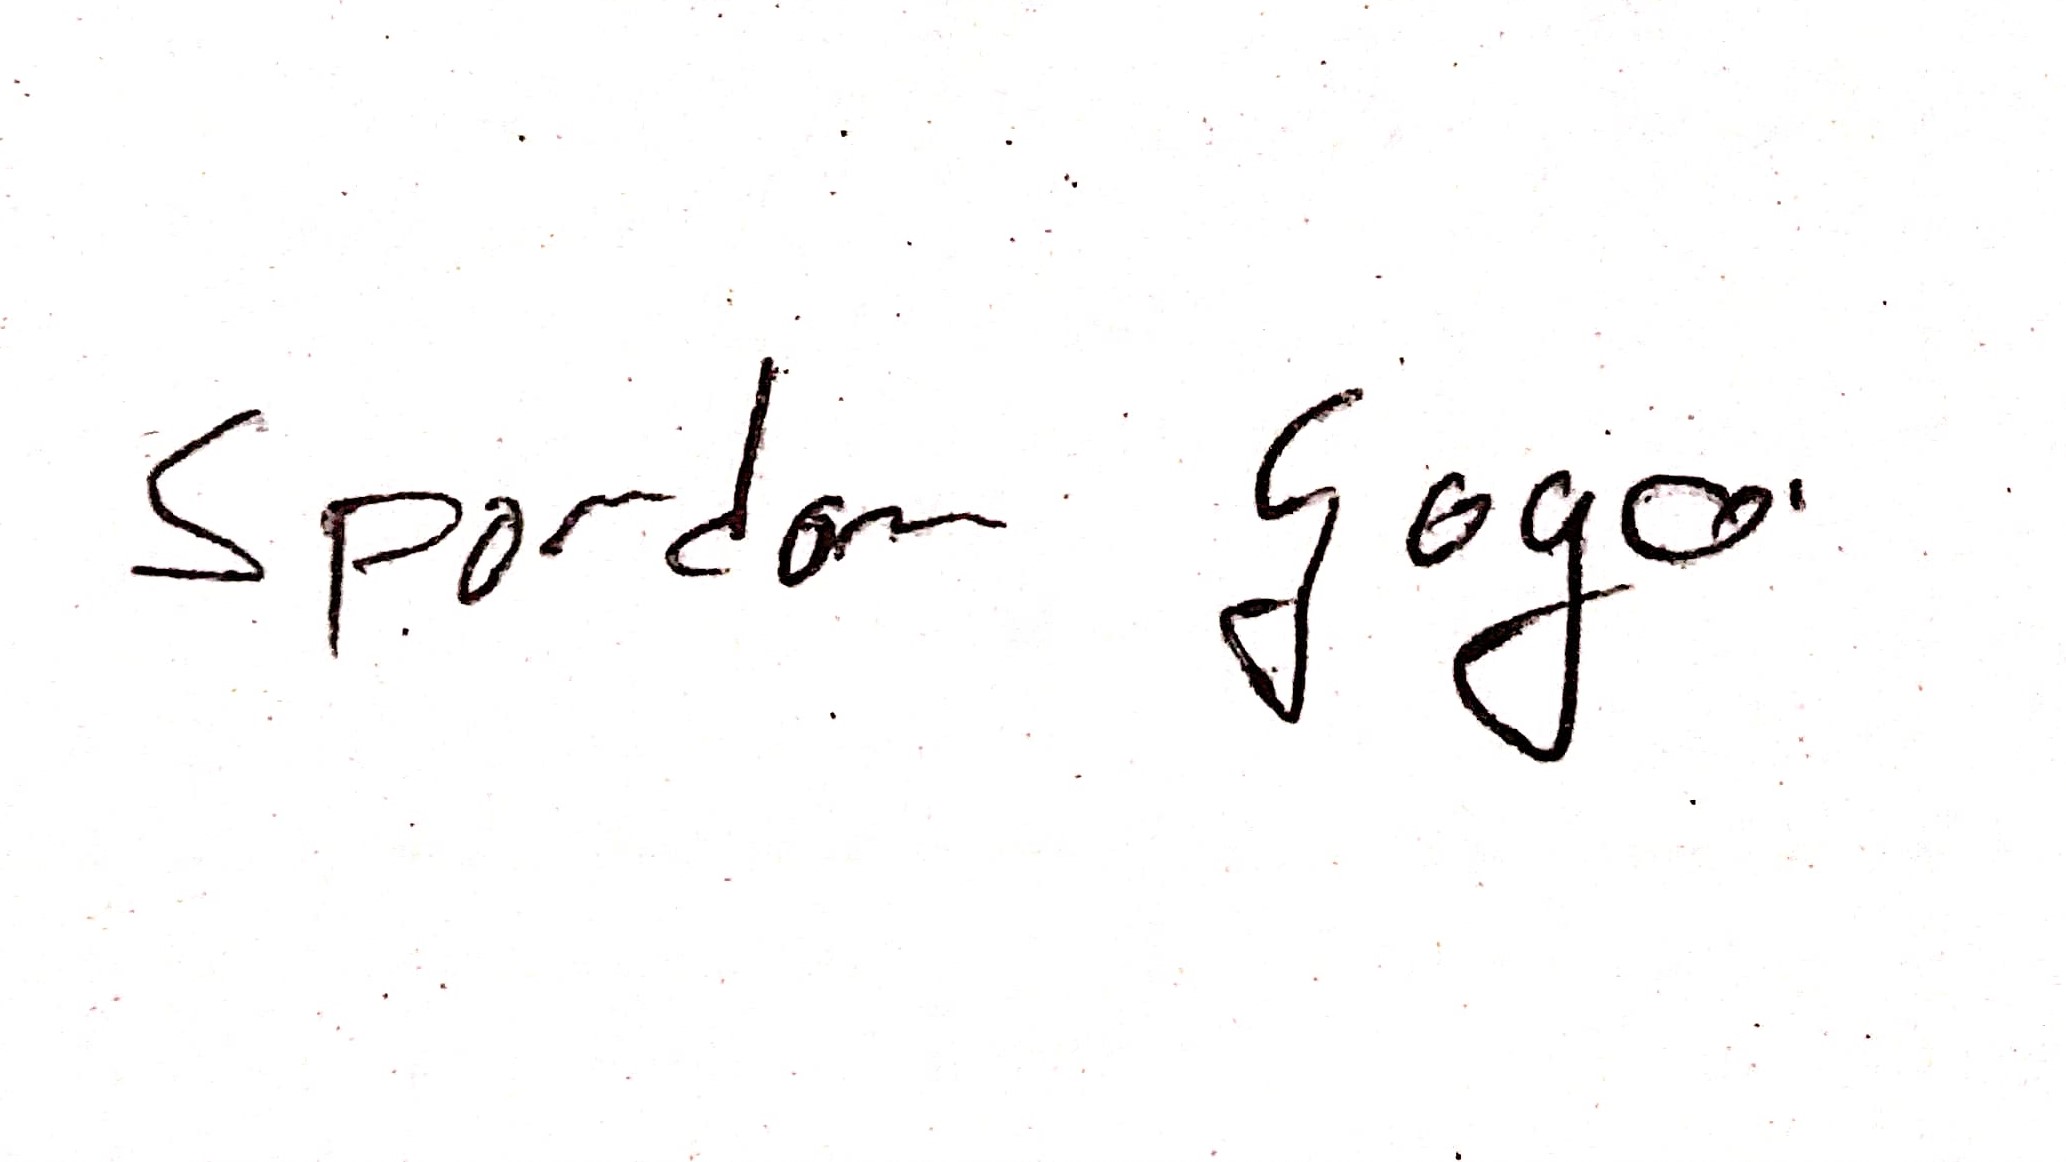 Spordon Gogo.